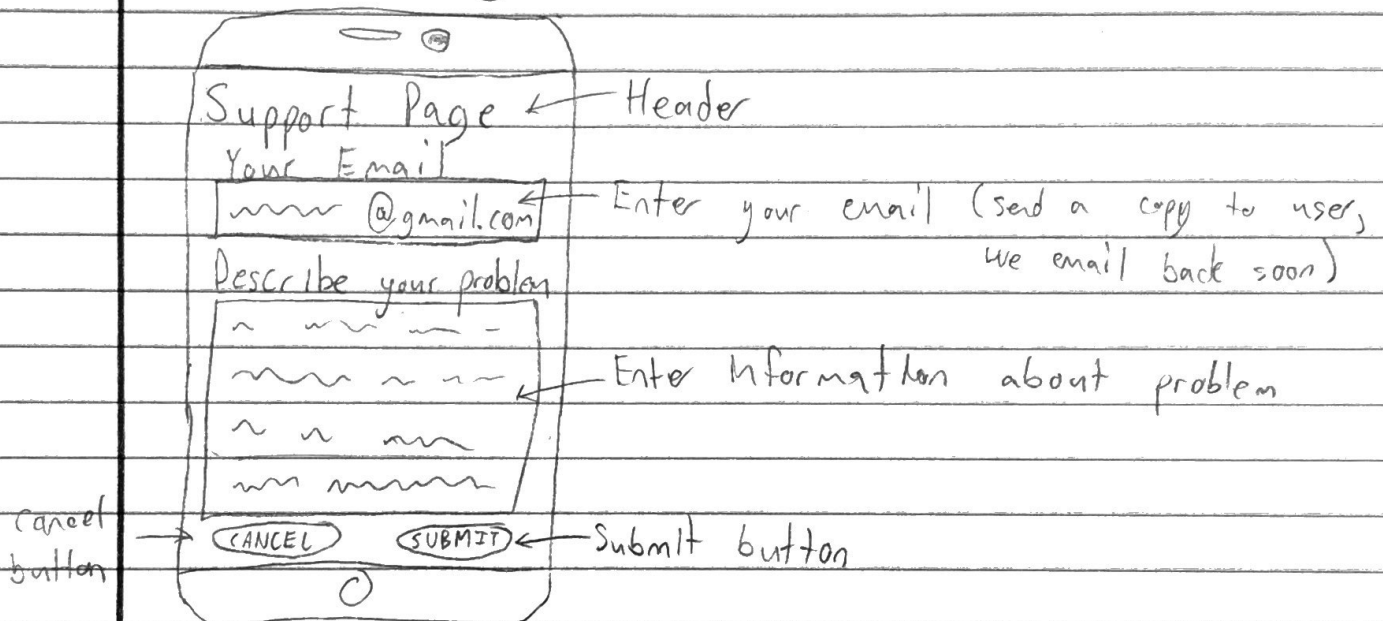 Support Page
Header
Your Email
@gmail.com
Enter your email (send a copy to user,
we email back soon)
Describe your problem
Enter information about problem
cancel
button
CANCEL
SUBMIT
Submit button